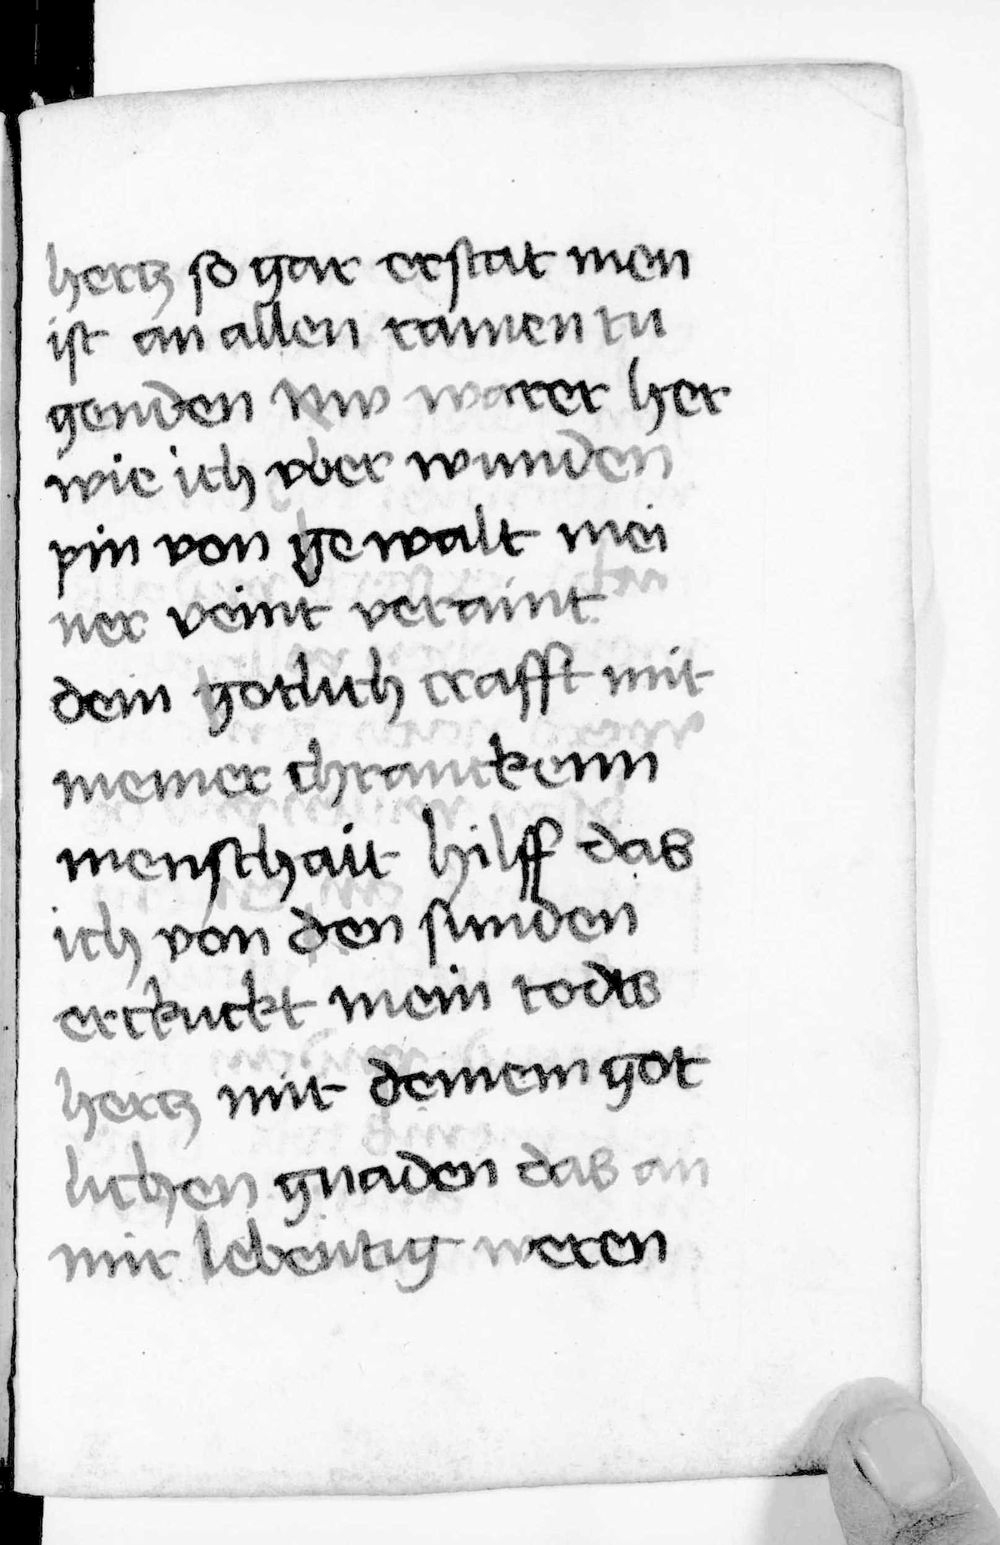 hertz so gar erstat men
ist an allen rainen tu
genden Nw warer her
wie ich vber wunden
pin von gewalt mei
ner veint veraint
dein gotlich crafft mit
meiner chranckenn
menschait hilff das
ich von den sunden
erckuckt mein todts
hertz mit deinem got
lichen gnaden das an
mir lebentig weren